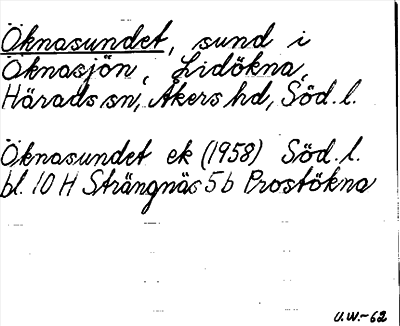 Öknasundet, sund i
Öknasjön, Lidökna,
Härads sn, Åkers hd, Söd. l.
Öknasundet ek (1958) Söd. l.
bl. 10 H Strängnäs 5 b Prostökna
U.W.-62